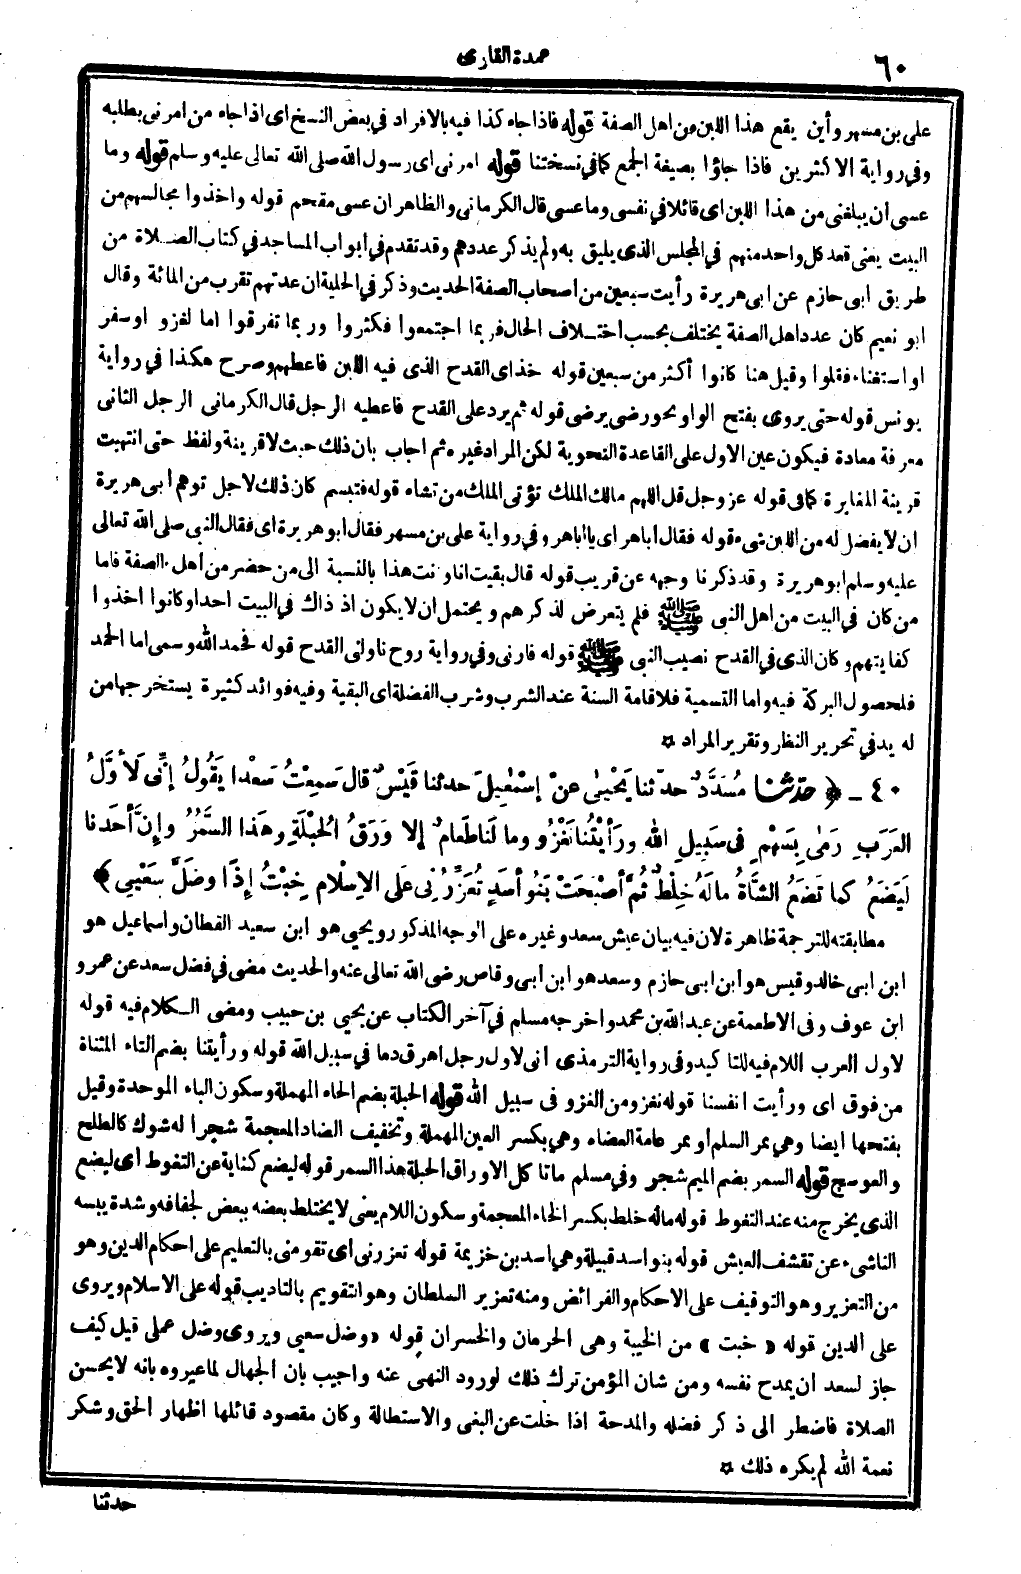 ٦٠
عمدة القارى
على بن مسهر وأين يقع هذا اللبن من اهل الصفة قوله فاذا جاه كذا فيه بالافراد في بعض النسخ اى اذا جاه من امرنى بطلبه
وفي رواية الاكثرين فاذا جاؤا بصيغة الجمع كما في نسختنا قوله امرنى اى رسول الله صلى الله تعالى عليه وسلم قوله وما
عسى أن يبلغنى من هذا اللبن اى قائلا في نفسى وما عسى قال الكرمانى والظاهر ان عسى مقحم قوله واخذوا مجالسهم من
البيت يعنى قعد كل واحد منهم في المجلس الذى يليق به ولم يذكر عددهم وقد تقدم في ابواب المساجد في كتاب الصلاة من
طريق ابى حازم عن ابى هريرة رأيت سبعين من اصحاب الصفة الحديث وذكر في الحلية ان عدتهم تقرب من المائة وقال
ابو نعيم كان عدد اهل الصفة يختلف بحسب اختلاف الحال فربما اجتمعوا فكثروا وربما تفرقوا اما لغزو او سفر
او استغناء فقلوا وقيل هنا كانوا أكثر من سبعين قوله خذ اى القدح الذى فيه اللبن فاعطهم وصرح هكذا في رواية
يونس قوله حتى يروى بفتح الواو نحو رضى يرضى قوله ثم يرد على القدح فاعطيه الرجل قال الكرمانى الرجل الثانى
معرفة معادة فيكون عين الاول على القاعدة النحوية لكن المراد غيره ثم اجاب بان ذلك حيث لا قرينة ولفظ حتى انتهيت
قرينة المغايرة كما فى قوله عز وجل قل اللهم مالك الملك تؤتى الملك من تشاه قوله فتبسم كان ذلك لاجل توهم ابى هريرة
ان لا يفضل له من اللبن شىء قوله فقال أباهر اى يا اباهر وفي رواية على بن مسهر فقال ابو هريرة اى فقال النبى صلى الله تعالى
عليه وسلم ابو هريرة وقد ذكرنا وجهه عن قريب قوله قال بقيت انا وانت هذا بالنسبة الى من حضر من أهل الصفة فاما
من كان في البيت من اهل النبى ﷺ فلم يتعرض لذكرهم ويحتمل ان لا يكون اذ ذاك في البيت احد او كانوا اخذوا
كفايتهم وكان الذى في القدح نصيب النبى ﷺ قوله فارنى وفي رواية روح ناولنى القدح قوله فحمد الله وسمى اما الحمد
فلحصول البركة فيه واما التسمية فلاقامة السنة عند الشرب وشرب الفضلة اى البقية وفيه فوائد كثيرة يستخرجها من
له يد في تحرير النظر وتقرير المراد ✡
٤٠ - ﴿ حَدَّثَنَا مُسَدَّدٌ حدّثنا يَحْيىٰ عنْ إسْمٰعِيلَ حَدثنا قَيْسٌ قال سَمِعْتُ سَعْدا يَقُولُ إنِّى لَأوَّلُ
العَرَبِ رَمٰى بِسَهْمٍ فى سَبِيلِ اللهِ ورَأيْتُنا نَغْزُو وما لَنا طَعامٌ إلا ورَقُ الحُبْلَةِ وهَذا السَّمُرُ وإنَّ أحَدَنا
لَيَضَعُ كما تَضَعُ الشَّاةُ ما لَهُ خِلْطٌ ثُمَّ أصْبَحَتْ بَنُو أسَدٍ تُعَزِّرُنِى على الإسْلامِ خِبْتُ إذًا وضَلَّ سَعْيِى ﴾
مطابقته للترجمة ظاهرة لان فيه بيان عيش سعد وغيره على الوجه المذكور ويحيى هو ابن سعيد القطان واسماعيل هو
ابن ابى خالد وقيس هو ابن ابى حازم وسعد هو ابن ابى وقاص رضى الله تعالى عنه والحديث مضى في فضل سعد عن عمرو
ابن عوف وفى الاطعمة عن عبد الله بن محمد واخرجه مسلم في آخر الكتاب عن يحيى بن حبيب ومضى الكلام فيه قوله
لاول العرب اللام فيه للتاكيد وفى رواية الترمذى انى لاول رجل اهرق دما في سبيل الله قوله ورأيتنا بضم التاء المثناة
من فوق اى ورأيت انفسنا قوله نغزو من الغزو فى سبيل الله قوله الحبلة بضم الحاء المهملة وسكون الباء الموحدة وقيل
بفتحها ايضا وهي ثمر السلم أو ثمر عامة العضاه وهي بكسر العين المهملة وتخفيف الضاد المعجمة شجرا له شوك كالطلح
والعوسج قوله السمر بضم الميم شجر وفي مسلم ما نا كل الا وراق الحبلة هذا السمر قوله ليضع كناية عن التغوط اى ليضع
الذى يخرج منه عند التغوط قوله ماله خلط بكسر الخاء المعجمة وسكون اللام يعنى لا يختلط بعضه ببعض لجفافه وشدة يبسه
الناشىء عن تقشف العيش قوله بنو اسد قبيلة وهي اسد بن خزيمة قوله تعزرنى اى تقومنى بالتعليم على احكام الدين وهو
من التعزير وهو التوقيف على الاحكام والفرائض ومنه تعزير السلطان وهو التقويم بالتاديب قوله على الاسلام ويروى
على الدين قوله « خبت » من الخيبة وهى الحرمان والخسران قوله « وضل سعيى ويروى وضل عملى قيل كيف
جاز لسعد ان يمدح نفسه ومن شان المؤمن ترك ذلك لورود النهى عنه واجيب بان الجهال لما عيروه بانه لا يحسن
الصلاة فاضطر الى ذكر فضله والمدحة اذا خلت عن البغى والاستطالة وكان مقصود قائلها اظهار الحق وشكر
نعمة الله لم يكره ذلك ✡
حدثنا